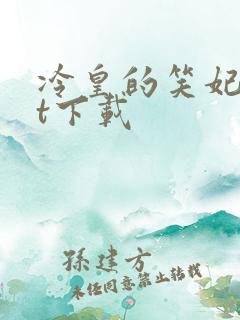 冷皇的笑妃
t下載
孫建方
未经同意禁止转载